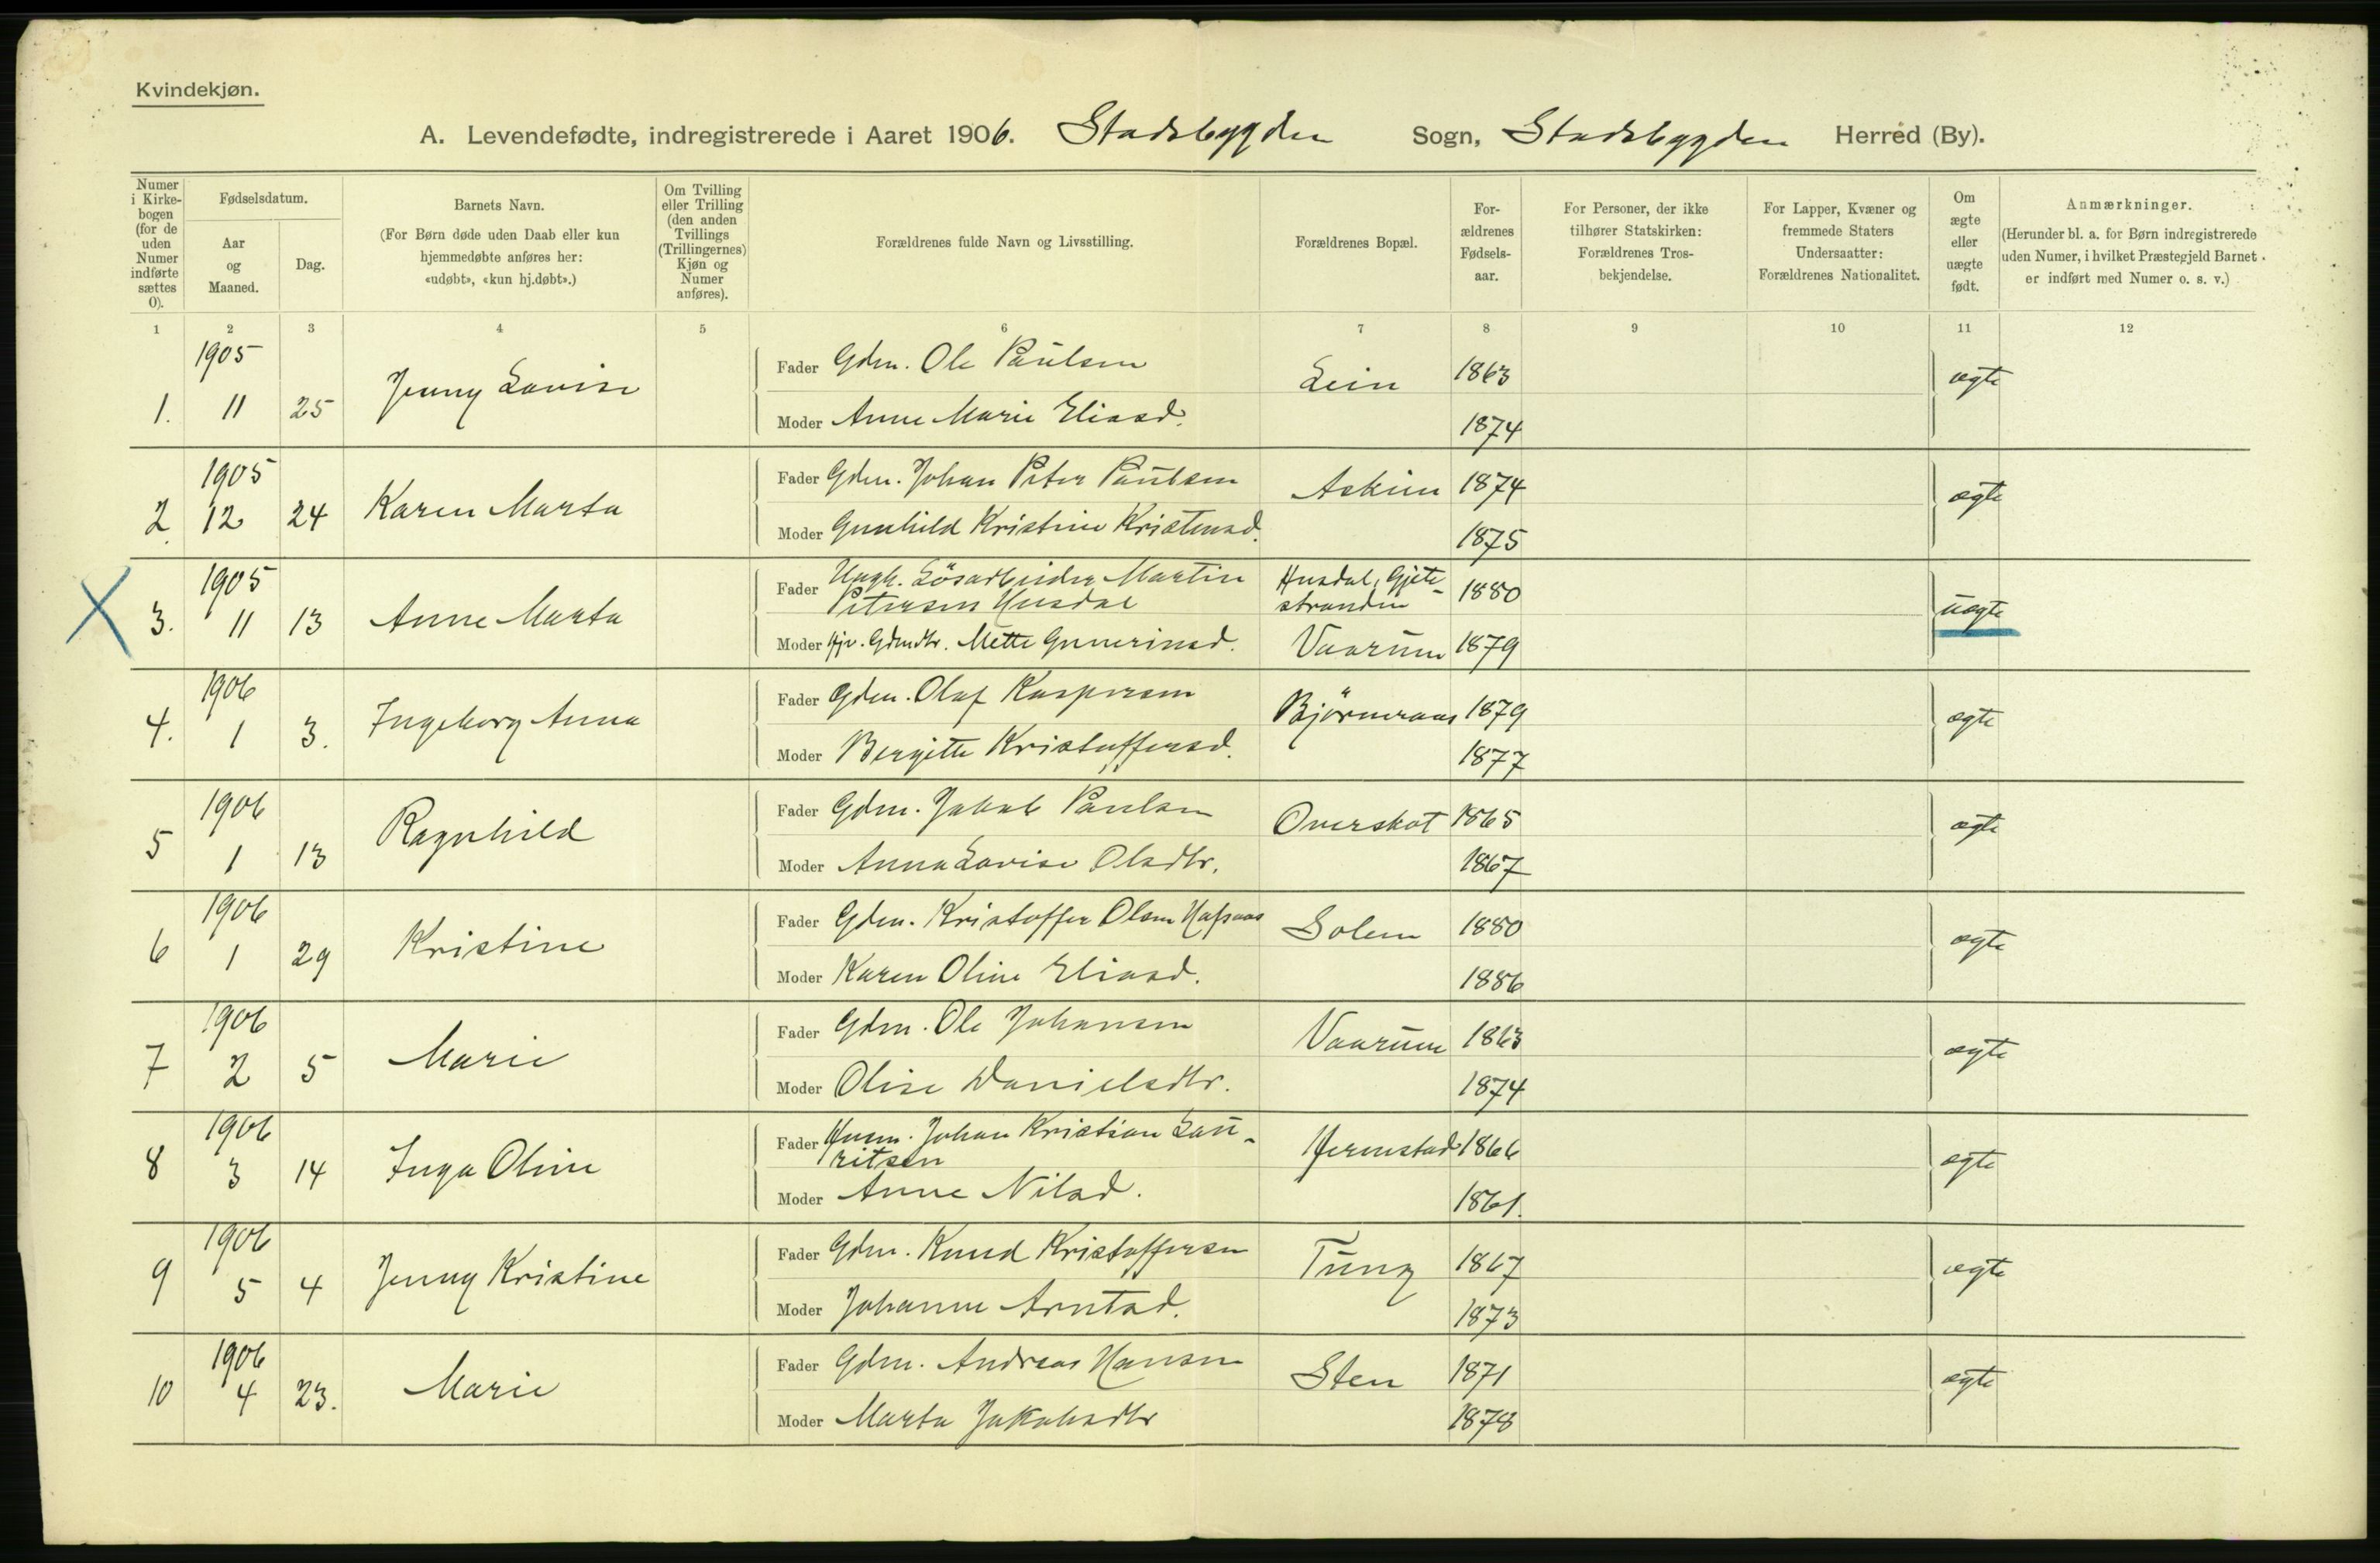 Kvindekjøn.
A. Levendefødte, indregistrerede i Aaret 1906. Stadsbygden Sogn, Stadsbygden Herred (By).
Numer i Kirke- bogen (for de uden Numer indførte sættes 0).
Fødselsdatum.
Aar og Maaned.
Dag.
Barnets Navn.
(For Børn døde uden Daab eller kun hjemmedøbte anføres her: «udøbt», «kun hj.døbt».)
Om Tvilling eller Trilling (den anden Tvillings (Trillingernes) Kjøn og Numer anføres).
Forældrenes fulde Navn og Livsstilling.
Forældrenes Bopæl.
For- ældrenes Fødsels- aar.
For Personer, der ikke tilhører Statskirken: Forældrenes Tros- bekjendelse.
For Lapper, Kvæner og fremmede Staters Undersaatter: Forældrenes Nationalitet.
Om ægte eller uægte født.
Anmærkninger.
(Herunder bl. a. for Børn indregistrerede uden Numer, i hvilket Præstegjeld Barnet er indført med Numer o. s. v.)
1 2 3 4 5 6 7 8 9 10 11 12
1905
1. 11 25 Jenny Lovise Fader Gdm. Ole Paulsen Lein 1863 ægte
Moder Anne Marie Eliasd. 1874
1905
2. 12 24 Karen Marta Fader Gdm. Johan Peter Paulsen Askim 1874 ægte
Moder Gunhild Kristine Kristensd. 1875
1905
3. 11 13 Anne Marta Fader Ungk. Løsarbeider Martin Petersen Husdal Husdal, Gjete- stranden 1880 uægte
Moder Pige. Gdmdtr. Mette Guneriusd. Vaarum 1879
1906
4. 1 3. Ingeborg Anna Fader Gdm. Olaf Kaspersen Björneraas 1879 ægte
Moder Bergitte Kristoffersd. 1877
1906
5 1 13 Ragnhild Fader Gdm. Jakob Paulsen Overskot 1865 ægte
Moder Anna Lovise Olsdtr. 1867
1906
6 1 29 Kristine Fader Gdm. Kristoffer Olsen Hafsaas Solem 1880 ægte
Moder Karen Oline Eliasd. 1886
1906
7 2 5 Marie Fader Gdm. Ole Johansen Vaarum 1863 ægte
Moder Olise Danielsdtr. 1874
1906
8 3 14 Inga Oline Fader Husm. Johan Kristian Lau- ritsen Hermstad 1866 ægte
Moder Anne Nilsd. 1861.
1906
9 5 4 Jenny Kristine Fader Gdm. Knud Kristoffersen Tung 1867 ægte
Moder Johanne Arntsd. 1873
1906
10 4 23. Marie Fader Gdm. Andreas Hansen Sten 1871 ægte
Moder Marta Jakobsdtr 1878